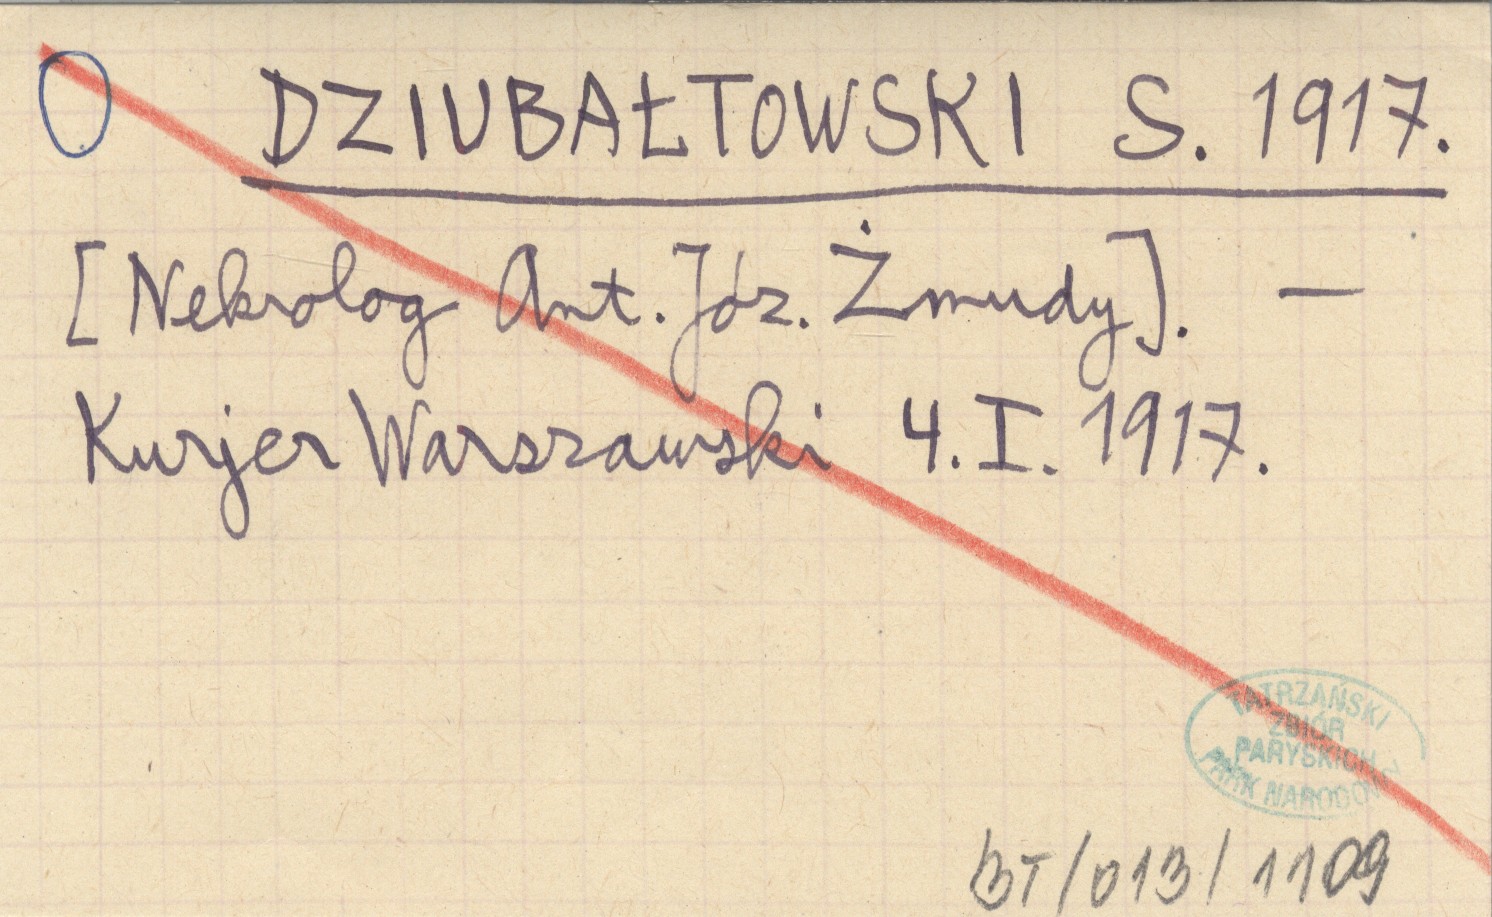 DZIUBAŁTOWSKI S. 1917.
[Nekrolog Ant. Józ. Żmudy]. —
Kurjer Warszawski 4.I.1917.
TATRZAŃSKI
ZBIÓR
PARYSKICH
PARK NARODOWY
BT/013/1109